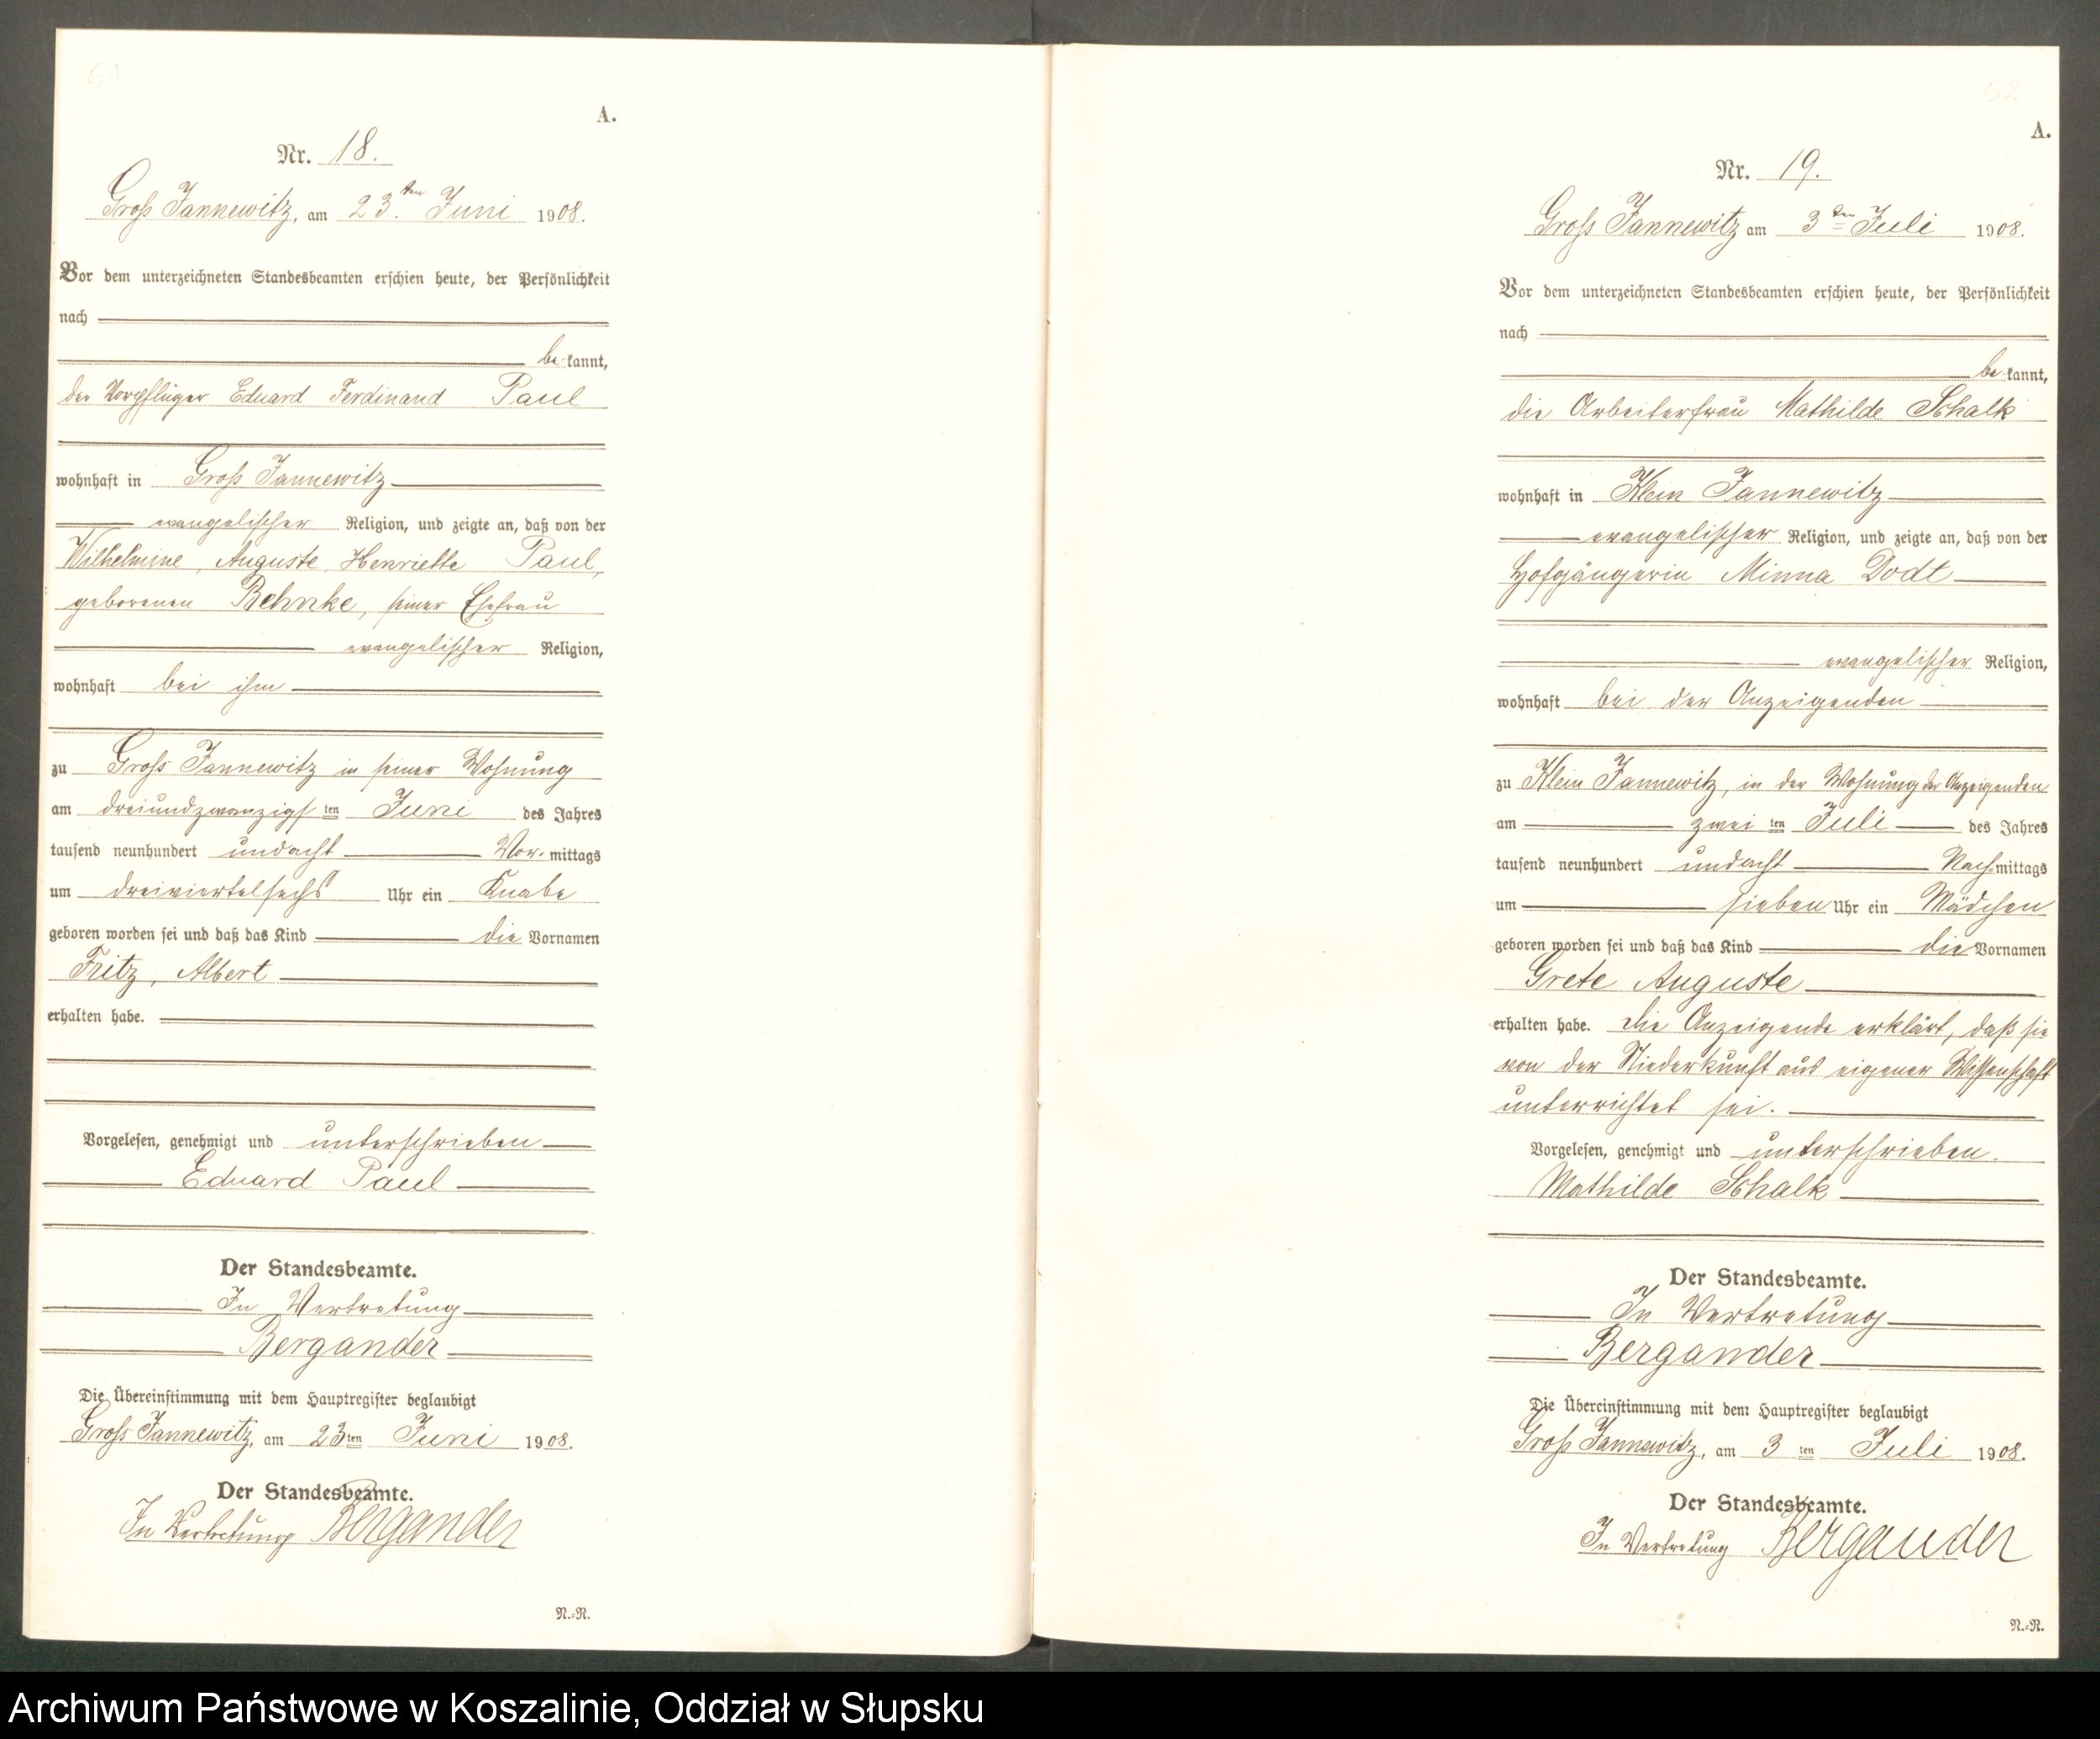 61
A.
Nr. 18.
Groß Jannewitz, am 23.ten Juni 1908.
Vor dem unterzeichneten Standesbeamten erschien heute, der Persönlichkeit
nach
be kannt,
der Vorpflüger Eduard Ferdinand Paul
wohnhaft in Groß Jannewitz
evangelischer Religion, und zeigte an, daß von der
Wilhelmine, Auguste, Henriette Paul,
geborenen Behnke, seiner Ehefrau
evangelischer Religion,
wohnhaft bei ihm
zu Groß Jannewitz in seiner Wohnung
am dreiundzwanzigsten Juni des Jahres
tausend neunhundert undacht Vor-mittags
um dreiviertelsechs Uhr ein Knabe
geboren worden sei und daß das Kind die Vornamen
Fritz, Albert
erhalten habe.
Vorgelesen, genehmigt und unterschrieben
Eduard Paul
Der Standesbeamte.
In Vertretung
Bergander
Die Übereinstimmung mit dem Hauptregister beglaubigt
Groß Jannewitz, am 23ten Juni 1908.
Der Standesbeamte.
In Vertretung Bergander
N.=N.
62
A.
Nr. 19.
Groß Jannewitz am 3ten Juli 1908.
Vor dem unterzeichneten Standesbeamten erschien heute, der Persönlichkeit
nach
be kannt,
die Arbeiterfrau Mathilde Schalk
wohnhaft in Klein Jannewitz
evangelischer Religion, und zeigte an, daß von der
Hofgängerin Minna Dodt
evangelischer Religion,
wohnhaft bei der Anzeigenden
zu Klein Jannewitz, in der Wohnung der Anzeigenden
am zwei ten Juli des Jahres
tausend neunhundert undacht Nach-mittags
um sieben Uhr ein Mädchen
geboren worden sei und daß das Kind die Vornamen
Grete Auguste
erhalten habe. Die Anzeigende erklärt, daß sie
von der Niederkunft aus eigener Wissenschaft
unterrichtet sei.
Vorgelesen, genehmigt und unterschrieben.
Mathilde Schalk
Der Standesbeamte.
In Vertretung
Bergander
Die Übereinstimmung mit dem Hauptregister beglaubigt
Groß Jannewitz, am 3 ten Juli 1908.
Der Standesbeamte.
In Vertretung Bergander
N.=N.
Archiwum Państwowe w Koszalinie, Oddział w Słupsku